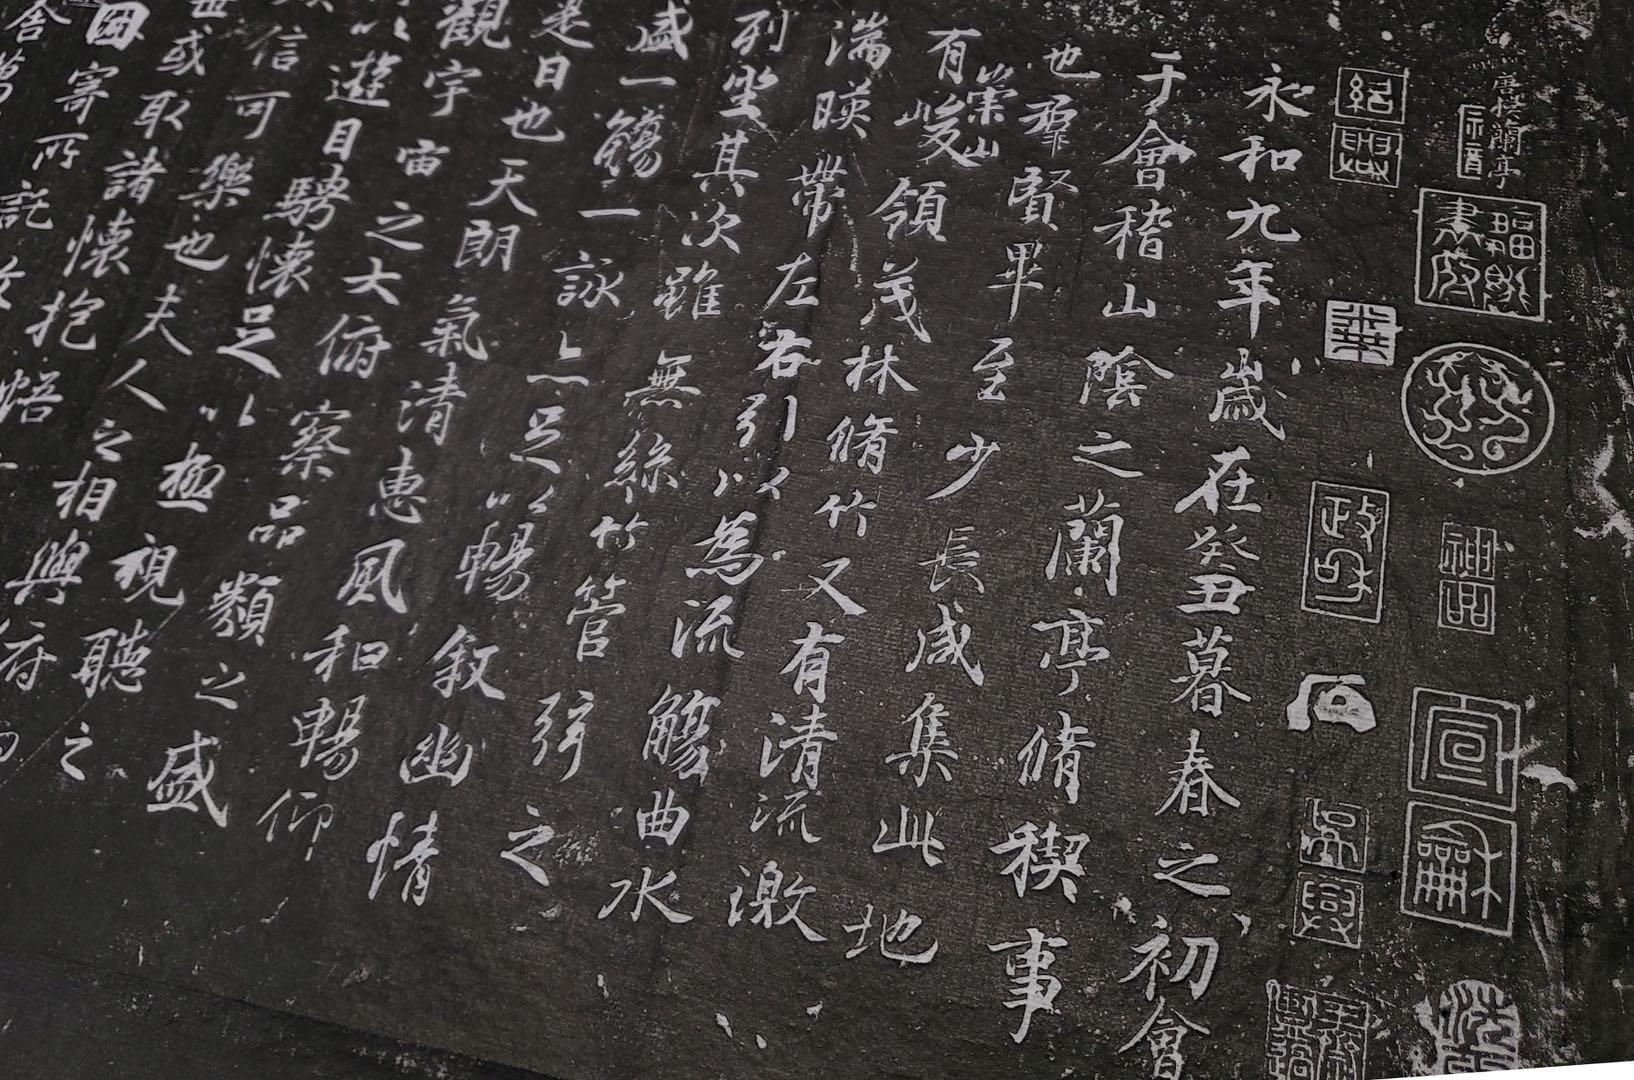 唐摸蘭亭
紹興
政和
宣和
永和九年歲在癸丑暮春之初會
于會稽山陰之蘭亭脩稧事
也羣賢畢至少長咸集此地
有崇山峻領茂林脩竹又有清流激
湍暎帶左右引以為流觴曲水
列坐其次雖無絲竹管弦之
盛一觴一詠亦足以暢敘幽情
是日也天朗氣清惠風和暢仰
觀宇宙之大俯察品類之盛
以遊目騁懷足以極視聽之
信可樂也夫人之相與俯
世或取諸懷抱
因寄所託
舍萬